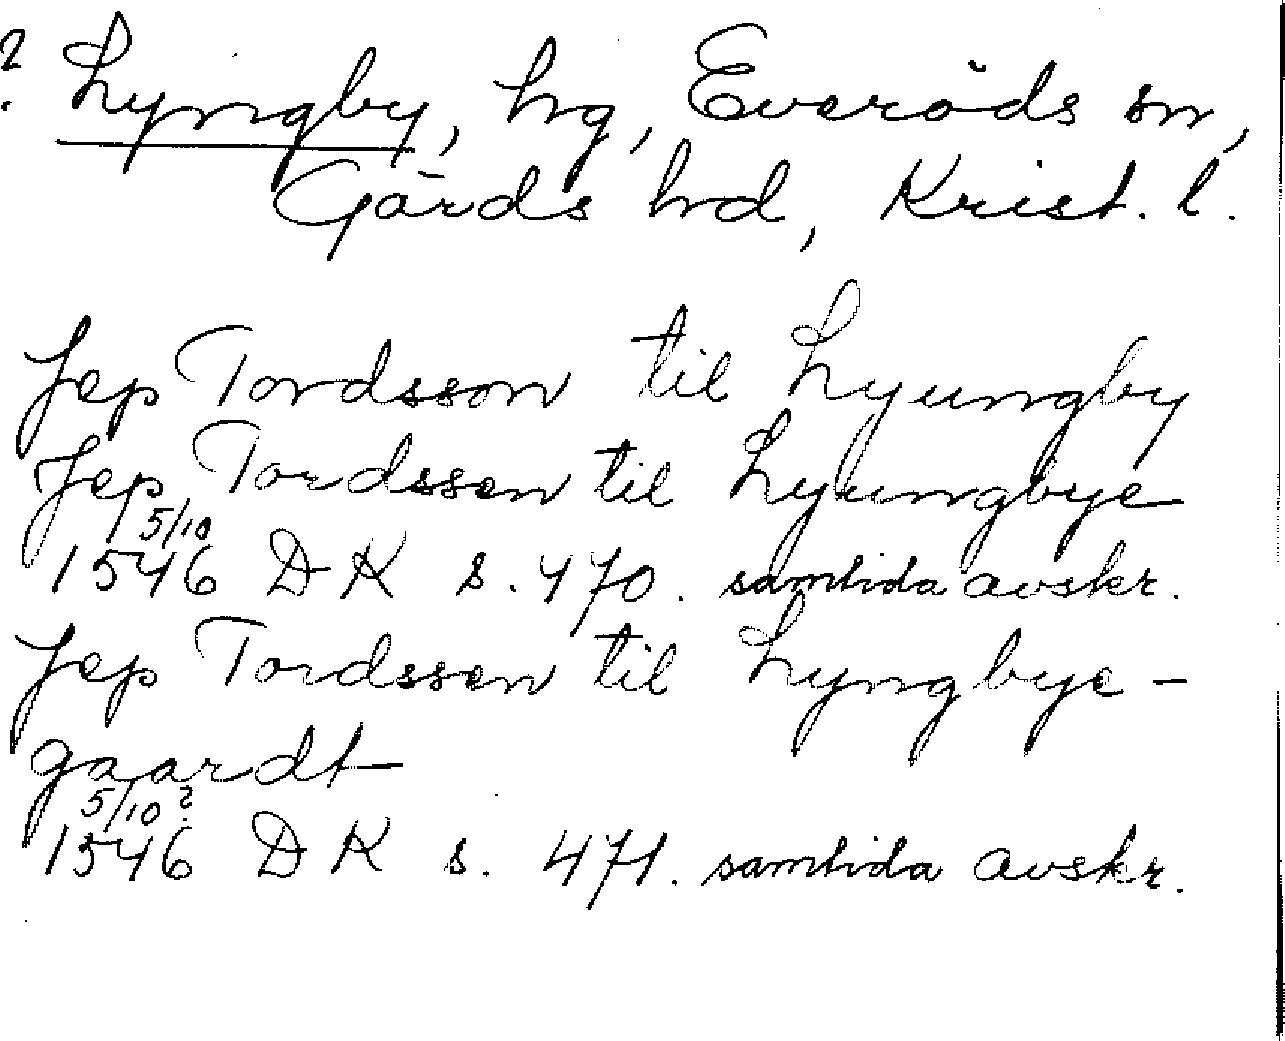 ? Lyngby, hg, Everöds sn,
Gärds hd, Krist. l.
Jep Tordsson til Lyungby
Jep Tordssen til Lyungbye
5/10
1546 DK s. 470. samtida avskr.
Jep Tordssen til Lyngbye-
gaardt
5/10 ?
1546 DK s. 471. samtida avskr.